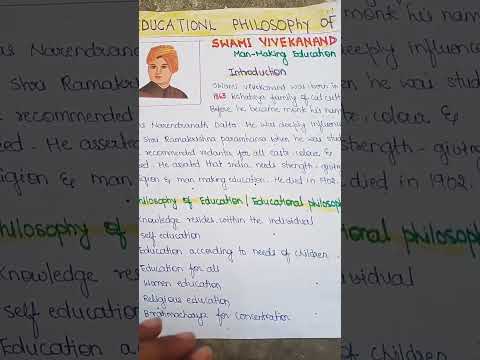 EDUCATIONL PHILOSOPHY OF
SWAMI VIVEKANAND
Man-Making Education
Introduction
Swami Vivekanand was born in
1863 Kshatriya family of Calcutta
Before he became monk his name
was Narendranath Datta. He was deeply influenced
Shri Ramakrishna paramhansa when he was stud
recommended vedanta for all caste, colour &
He asserted that India needs strength-giving
religion & man making education. He died in 1902.
Philosophy of Education / Educational philosophy
Knowledge resides within the individual
Self education
Education according to needs of children
Education for all
Women education
Religious education
Brahmacharya for concentration